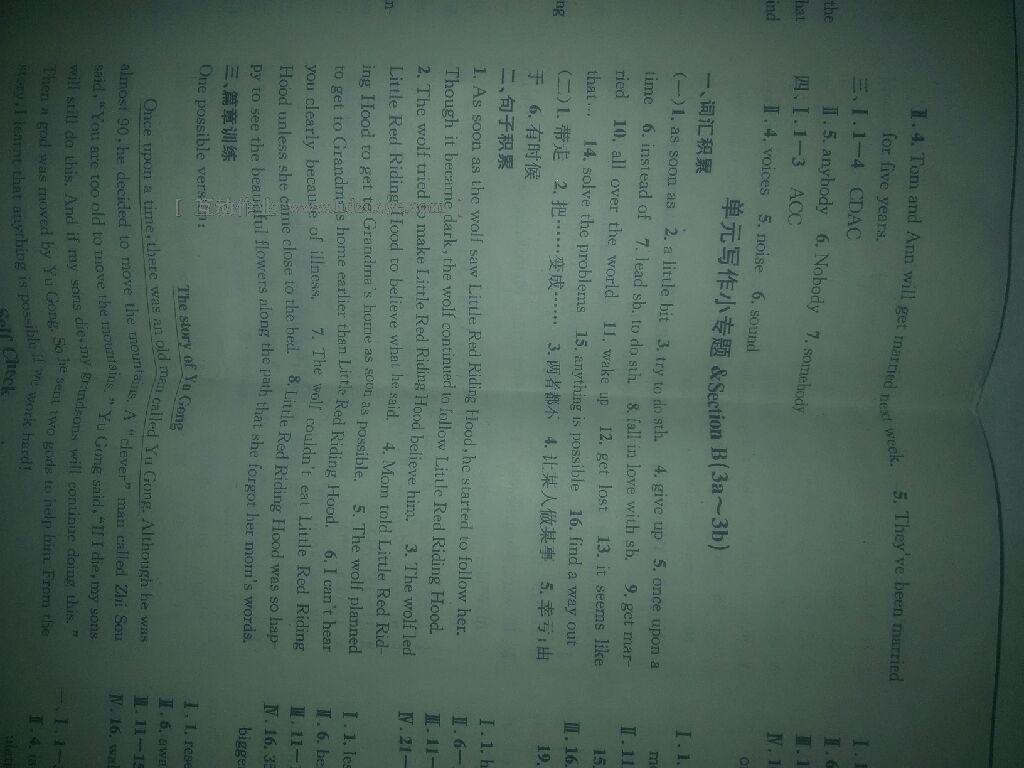 Ⅱ. 4. Tom and Ann will get married next week. 5. They've been married
for five years.
三、Ⅰ. 1－4 CDAC
Ⅱ. 5. anybody 6. Nobody 7. somebody
四、Ⅰ. 1－3 ACC
Ⅱ. 4. voices 5. noise 6. sound
单元写作小专题 &Section B(3a～3b)
一、词汇积累
(一)1. as soon as 2. a little bit 3. try to do sth. 4. give up 5. once upon a
time 6. instead of 7. lead sb. to do sth. 8. fall in love with sb. 9. get mar-
ried 10. all over the world 11. wake up 12. get lost 13. it seems like
that… 14. solve the problems 15. anything is possible 16. find a way out
(二)1. 带走 2. 把……变成…… 3. 两者都不 4. 让某人做某事 5. 幸亏;由
于 6. 有时候
二、句子积累
1. As soon as the wolf saw Little Red Riding Hood, he started to follow her.
Though it became dark, the wolf continued to follow Little Red Riding Hood.
2. The wolf tried to make Little Red Riding Hood believe him. 3. The wolf led
Little Red Riding Hood to believe what he said. 4. Mom told Little Red Rid-
ing Hood to get to Grandma's home as soon as possible. 5. The wolf planned
to get to Grandma's home earlier than Little Red Riding Hood. 6. I can't hear
you clearly because of illness. 7. The wolf couldn't eat Little Red Riding
Hood unless she came close to the bed. 8. Little Red Riding Hood was so hap-
py to see the beautiful flowers along the path that she forgot her mom's words.
三、篇章训练
One possible version:
The story of Yu Gong
Once upon a time, there was an old man called Yu Gong. Although he was
almost 90, he decided to move the mountains. A "clever" man called Zhi Sou
said, "You are too old to move the mountains." Yu Gong said, "If I die, my sons
will still do this. And if my sons die, my grandsons will continue doing this."
Then a god was moved by Yu Gong. So he sent two gods to help him. From the
story, I learnt that anything is possible if we work hard!
Self Check